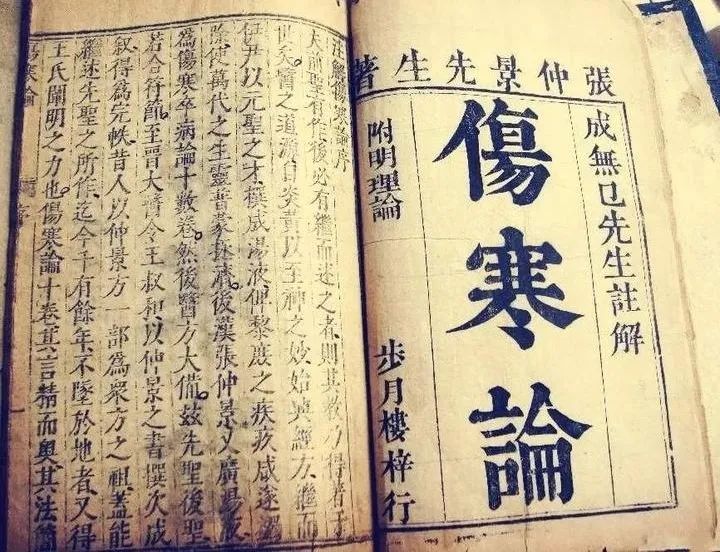 張仲景先生著
成無已先生註解
傷寒論
附明理論
步月樓梓行
注解傷寒論序
夫前聖有作後必有繼而述之者則其教乃得著于
世矣。醫之道源自炎黃以至神之妙始興經方繼而
伊尹以元聖之才撰成湯液俾黎庶之疾疚咸遂蠲
除使萬代之生靈普蒙拯濟後漢張仲景又廣湯液
為傷寒卒病論十數卷。然後醫方大備茲先聖後聖
若合符節。至晉大醫令王叔和以仲景之書撰次成
叙得為完帙昔人以仲景方一部為眾方之祖蓋能
繼述先聖之所作迄今千有餘年不墜於地者又得
王氏闡明之力也。傷寒論十卷其言精而奧其法簡
傷寒論